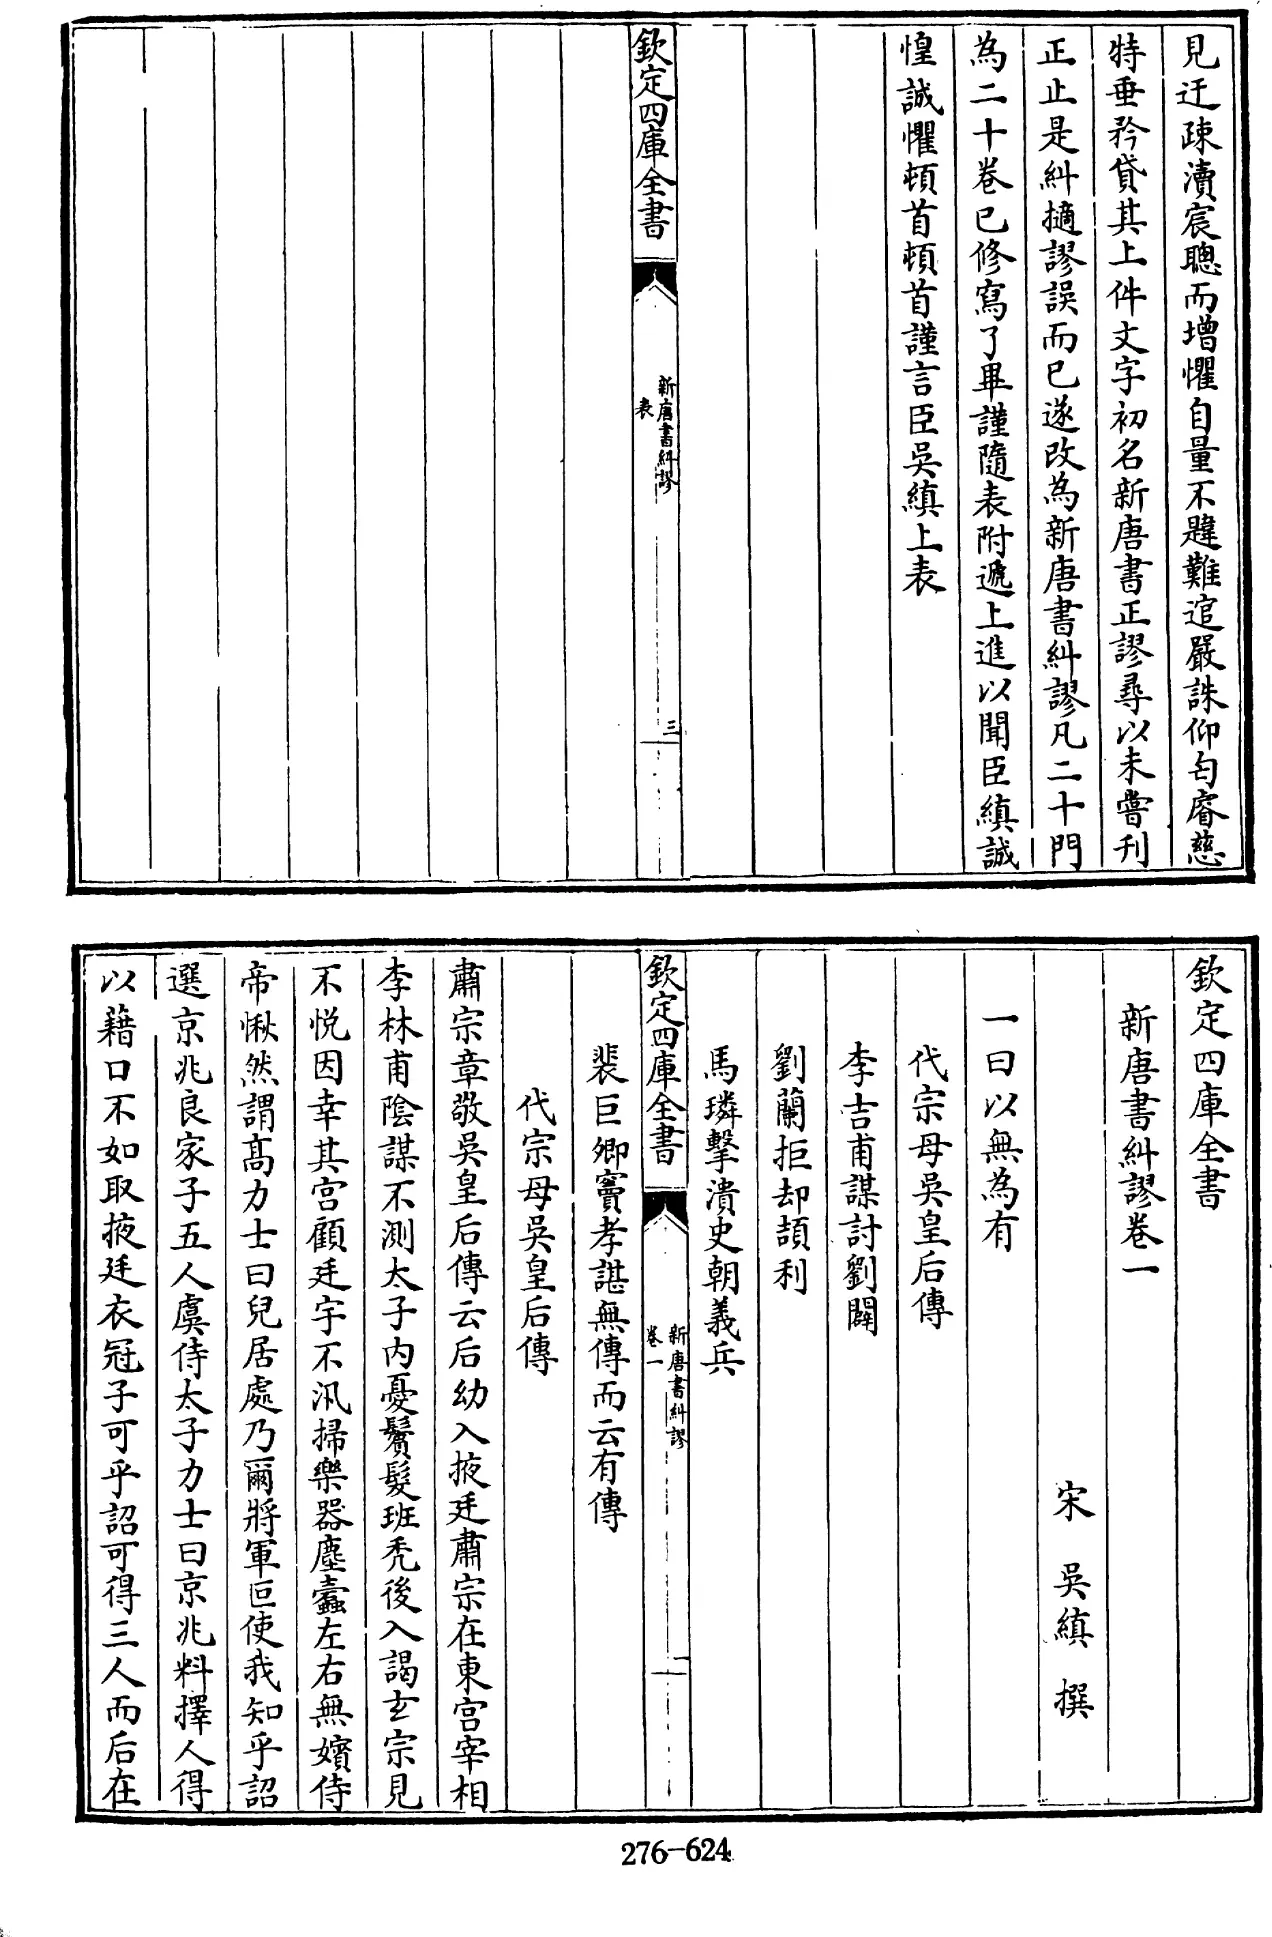 見迂疎瀆宸聰而增懼自量不韙難逭嚴誅仰匄睿慈
特垂矜貸其上件文字初名新唐書正謬尋以未嘗刊
正止是糾擿謬誤而已遂改為新唐書糾謬凡二十門
為二十卷已修寫了畢謹隨表附遞上進以聞臣縝誠
惶誠懼頓首頓首謹言臣吳縝上表
欽定四庫全書
新唐書糾謬
表
三
欽定四庫全書
新唐書糾謬卷一
宋 吳縝 撰
一曰以無為有
代宗母吳皇后傳
李吉甫謀討劉闢
劉蘭拒却頡利
馬璘擊潰史朝義兵
欽定四庫全書
新唐書糾謬
卷一
一
裴巨卿竇孝諶無傳而云有傳
代宗母吳皇后傳
肅宗章敬吳皇后傳云后幼入掖廷肅宗在東宮宰相
李林甫陰謀不測太子內憂鬢髮班禿後入謁玄宗見
不悅因幸其宮顧廷宇不汛掃樂器塵蠹左右無嬪侍
帝愀然謂高力士曰兒居處乃爾將軍叵使我知乎詔
選京兆良家子五人虞侍太子力士曰京兆料擇人得
以藉口不如取掖廷衣冠子可乎詔可得三人而后在
276-624